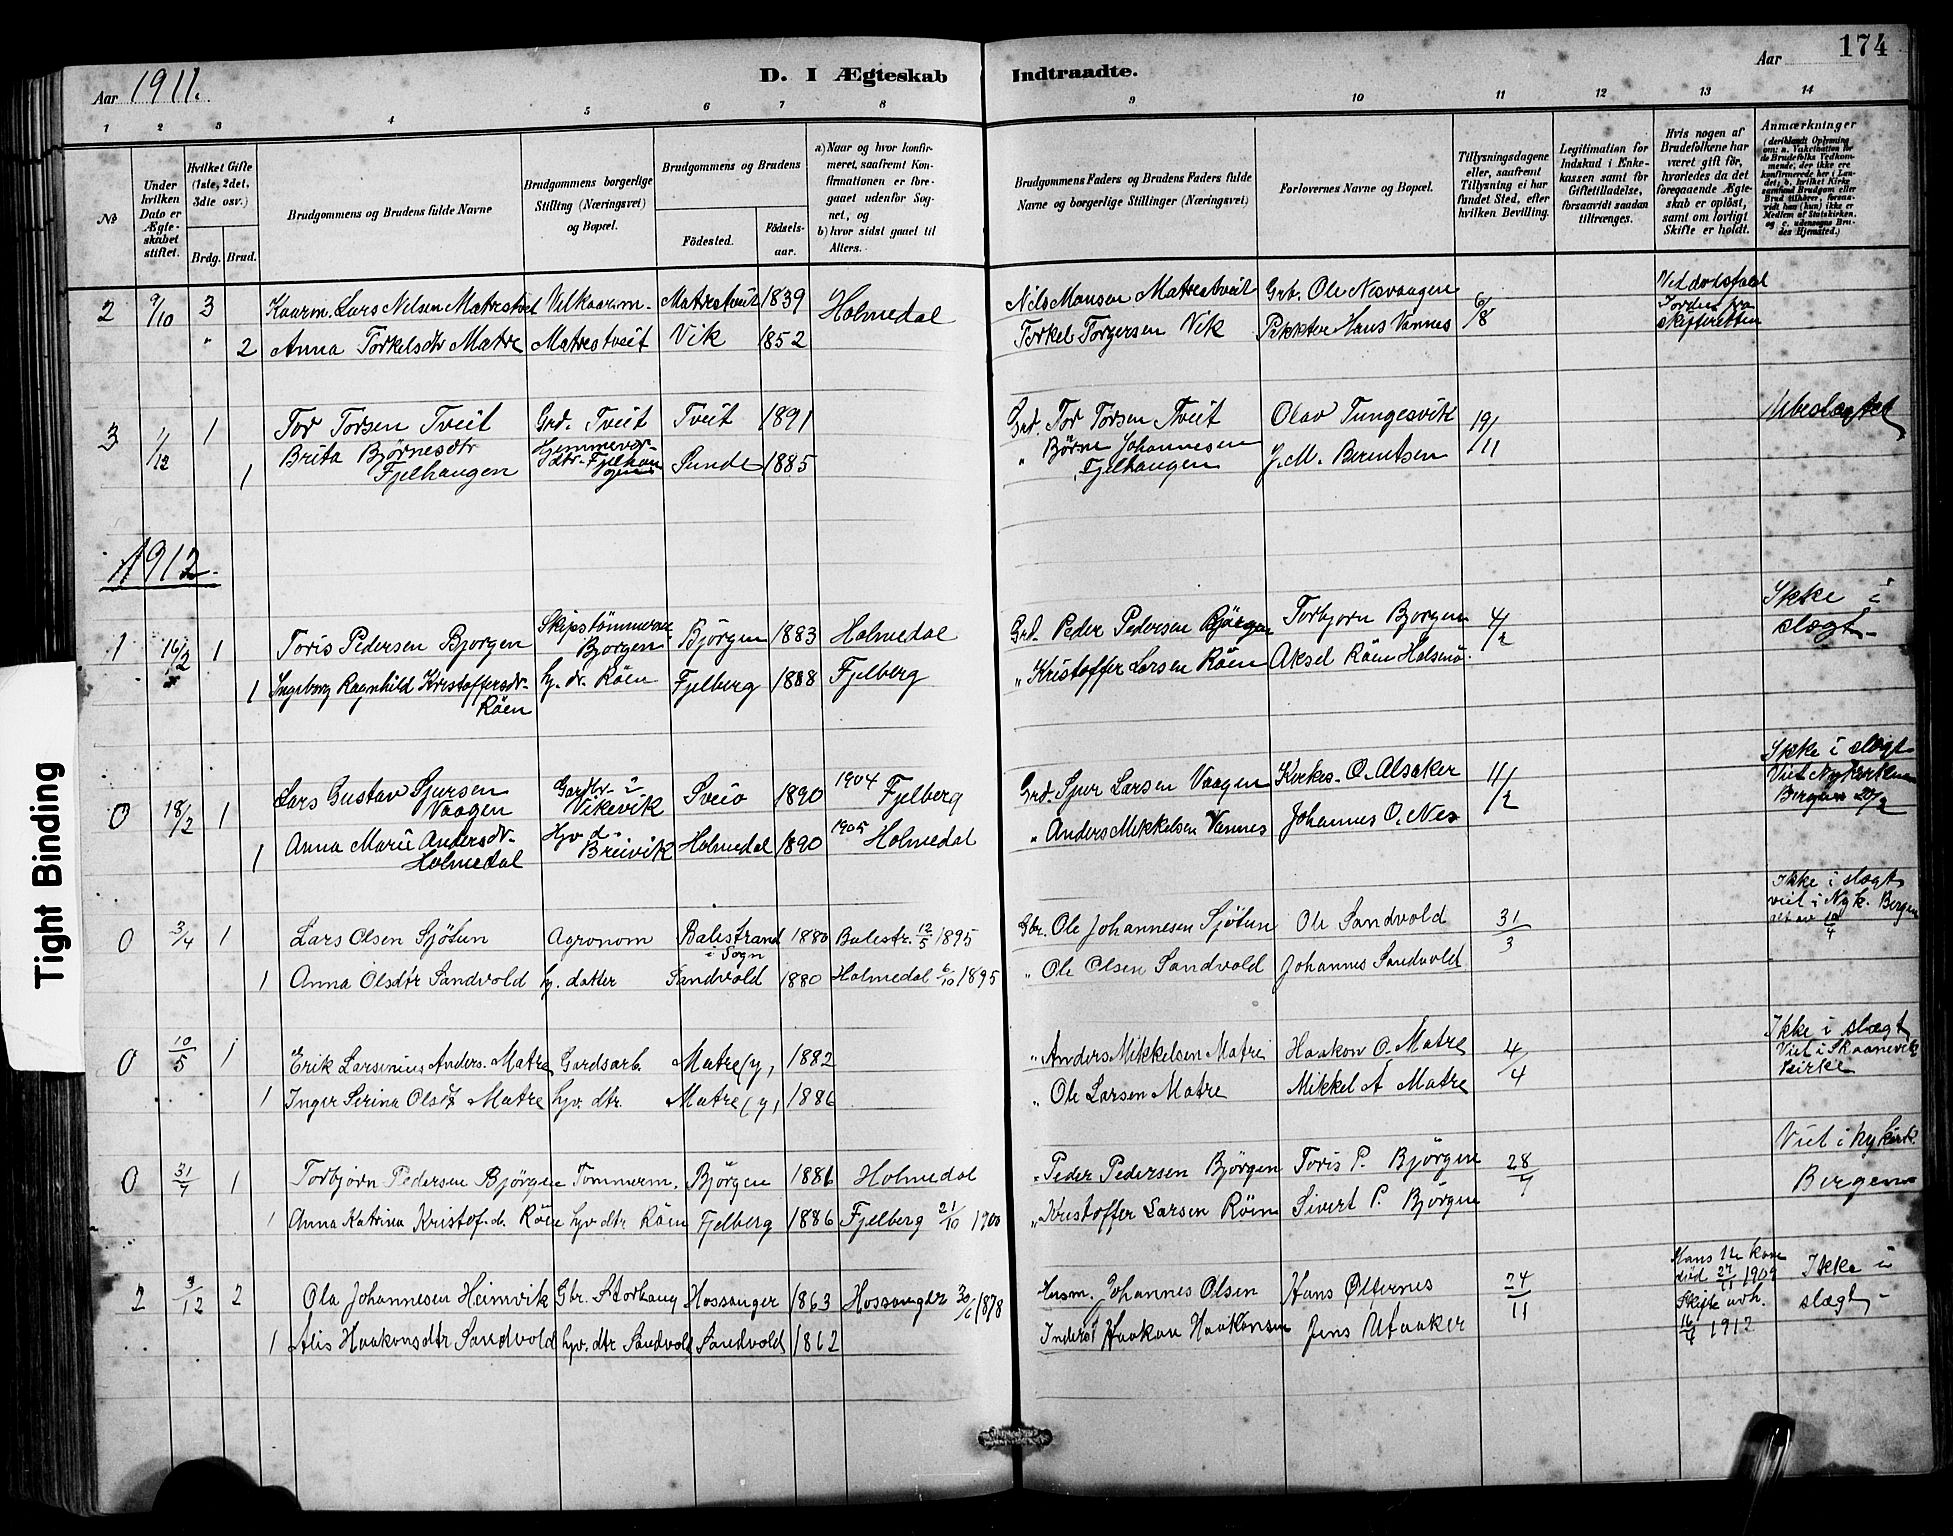 174
Aar 1911.
D. I Ægteskab Indtraadte.
Aar
1 2 3 4 5 6 7 8 9 10 11 12 13 14
No
Under hvilken Dato er Ægteskabet stiftet.
Hvilket Gifte (1ste, 2det, 3dte osv.)
Brdg. Brud.
Brudgommens og Brudens fulde Navne
Brudgommens borgerlige Stilling (Næringsvei) og Bopæl.
Brudgommens og Brudens
Fødested. Fødsels-aar.
a) Naar og hvor konfirmeret, saafremt Konfirmationen er foregaaet udenfor Sognet, og
b) hvor sidst gaaet til Alters.
Brudgommens Faders og Brudens Faders fulde Navne og borgerlige Stillinger (Næringsvei)
Forlovernes Navne og Bopæl.
Tillysningsdagene eller, saafremt Tillysning ei har fundet Sted, efter hvilken Bevilling.
Legitimation for Indskud i Enkekassen samt for Giftetilladelse, forsaavidt saadan tiltrænges.
Hvis nogen af Brudefolkene har været gift før, hvorledes da det foregaaende Ægteskab er opløst, samt om lovligt Skifte er holdt.
Anmærkninger
(deriblandt Oplysning om: a. Vakcination for de Brudefolks Vedkommende, der ikke ere konfirmerede her i Landet; b. hvilket Kirkesamfund Brudgom eller Brud tilhører, forsaavidt han (hun) ikke er Medlem af Statskirken, og c. udensogns Brudes Hjemsted.)
2 9/10 3 Kaarm. Lars Nilsen Matrestveit Vilkaarm. Matrestveit 1839 Holmedal Nils Monsen Matrestveit Grb. Ole Nesvaagen 6/8 Ved dødsfald
" 2 Anna Torkelsdtr Matre Matrestveit Vik 1852 Torkel Torgersen Vik Hans Vannes skifteretten
3 1/12 1 Tor Torsen Tveit Grd. Tveit Tveit 1891 Grd. Tor Torsen Tveit Olav Tungesvik 19/11 Ubeslægtet
1 Brita Børnesdtr Fjelhaugen Sunde 1885 " Børne Johannesen Fjelhaugen J. M. Berentsen
1912.
1 16/2 1 Toris Pedersen Bjorgen Skipstömmerm. Bjorgen Björgen 1883 Holmedal Grd. Peder Pedersen Björgen Torbjorn Bjorgen 4/2 Ikke i slægt
1 Ingeborg Ragnhild Kristoffersdr. Röen hv. dr. Röen Fjelberg 1888 Fjelberg " Kristoffer Larsen Röen Aksel Röen Halsenö.
0 18/2 1 Lars Gustav Sjursen Vaagen Vikevik Sveio 1890 1904 Fjelberg Grd. Sjur Larsen Vaagen Kirkes. O. Alsaker 11/2 Ikke i slægt Viet Nykirken Bergen 20/2
1 Anna Marie Andersdr. Holmedal Hjv d. Breivik Holmedal 1890 1905 Holmedal " Anders Mikkelsen Vannes Johannes O. Nes
0 3/4 1 Lars Olsen Sjötun Agronom Balestrand i Sogn 1880 Balestr. 12/5 1895 Gbr. Ole Johannesen Sjötun Ole Sandvold 31/3 Ikke i slægt viet i Nyk. Bergen
1 Anna Olsdtr Sandvold hj. datter Sandvold 1880 Holmedal 6/10 1895 " Ole Olsen Sandvold Johannes Sandvold
0 10/5 1 Erik Larsenius Anders. Matre Gardsarb. Matre (y, 1882 " Anders Mikkelsen Matre Haakon O. Matre 4/4 Ikke i slægt Viet i Skaanevik Kirke
1 Inger Serina Olsdtr Matre hjv. dtr. Matre (y, 1886 " Ole Larsen Matre Mikkel A Matre
0 31/7 1 Torbjörn Pedersen Björgen Tommerm. Björgen 1881 Holmedal " Peder Pedersen Björgen Toris P. Björgen 28/7 Viet i Nykirk. Bergen
1 Anna Katrina Kristof. d. Röen hjv. dtr Röen Fjelberg 1886 Fjelberg 21/10 1900 " Kristoffer Larsen Röen Sivert P. Björgen
2 3/12 2 Ola Johannesen Heimvik Gbr. Storhaug Hossanger 1863 Hossanger 30/6 1878 Husm. Johannes Olsen Hans Østernes 24/11 Hans 1te kone död 27/11 1909 Skifte avh. 16/4 1912 Ikke i slægt
1 Alis Haakonsdtr Sandvold hjv. dtr Sandvold Sandvold 1862 Inderst Haakon Haakonsen Jens Utaaker
Tight Binding